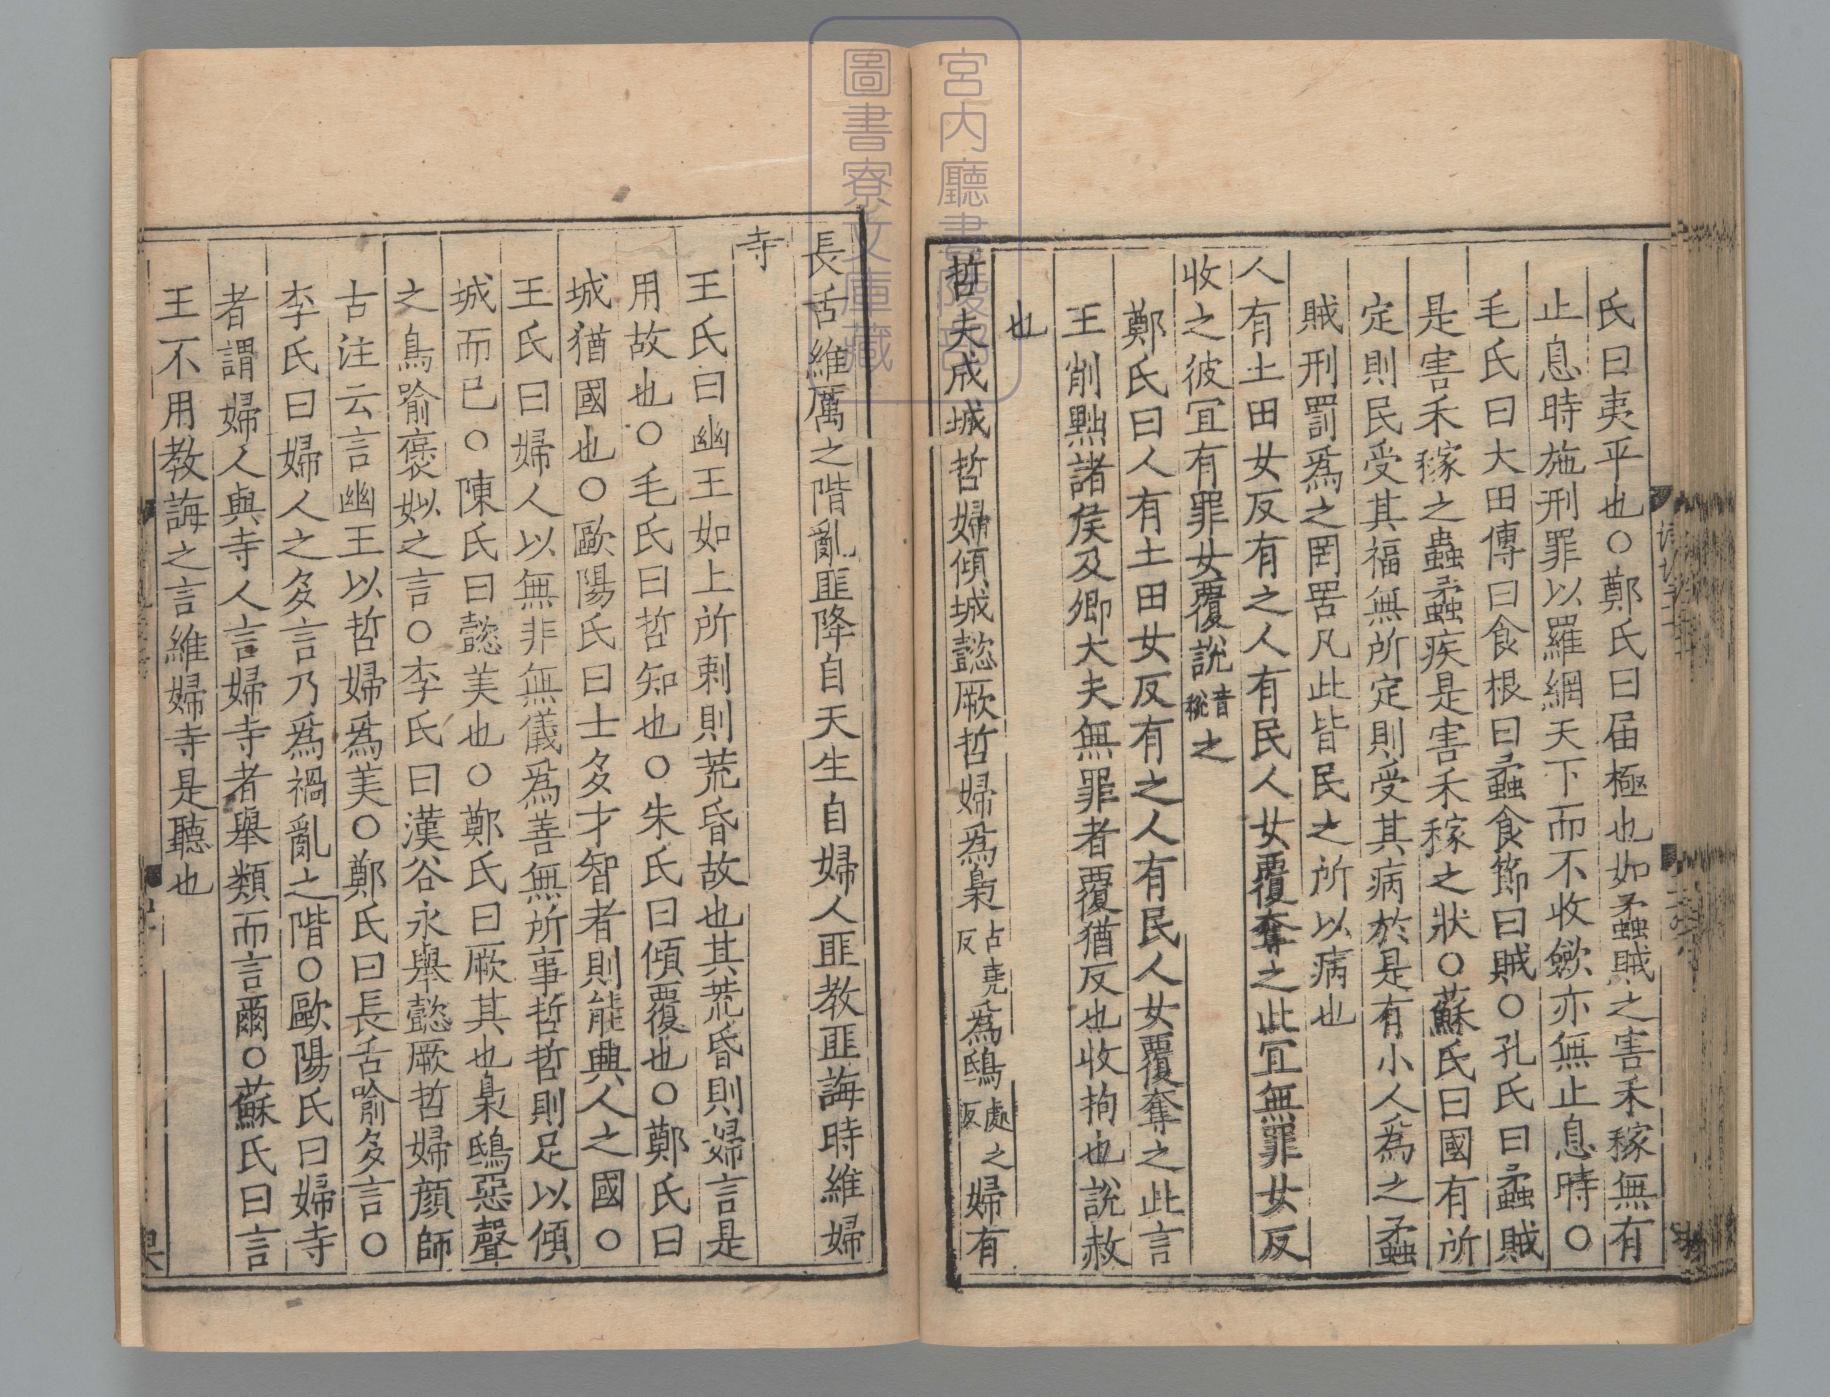 氏曰夷平也○鄭氏曰届極也如蟊賊之害禾稼無有
止息時施刑罪以羅網天下而不收斂亦無止息時○
毛氏曰大田傳曰食根曰蟊食節曰賊○孔氏曰蟊賊
是害禾稼之蟲蟊疾是害禾稼之狀○蘇氏曰國有所
定則民受其福無所定則受其病於是有小人為之蟊
賊刑罰爲之罔罟凡此皆民之所以病也
人有土田女反有之人有民人女覆奪之此宜無罪女反
收之彼宜有罪女覆說音稅之
鄭氏曰人有土田女反有之人有民人女覆奪之此言
王削黜諸侯及卿大夫無罪者覆猶反也收拘也說赦
也
哲夫成城哲婦傾城懿厥哲婦爲梟古堯反爲鴟處之反婦有
長舌維厲之階亂匪降自天生自婦人匪教匪誨時維婦
寺
王氏曰幽王如上所刺則荒昏故也其荒昏則婦言是
用故也○毛氏曰哲知也○朱氏曰傾覆也○鄭氏曰
城猶國也○歐陽氏曰士多才智者則能興人之國○
王氏曰婦人以無非無儀爲善無所事哲哲則足以傾
城而已○陳氏曰懿美也○鄭氏曰厥其也梟鴟惡聲
之鳥喻褒姒之言○李氏曰漢谷永舉懿厥哲婦顔師
古注云言幽王以哲婦爲美○鄭氏曰長舌喻多言○
李氏曰婦人之多言乃爲禍亂之階○歐陽氏曰婦寺
者謂婦人與寺人言婦寺者舉類而言爾○蘇氏曰言
王不用教誨之言維婦寺是聽也
宮内廳書陵部
圖書寮文庫藏